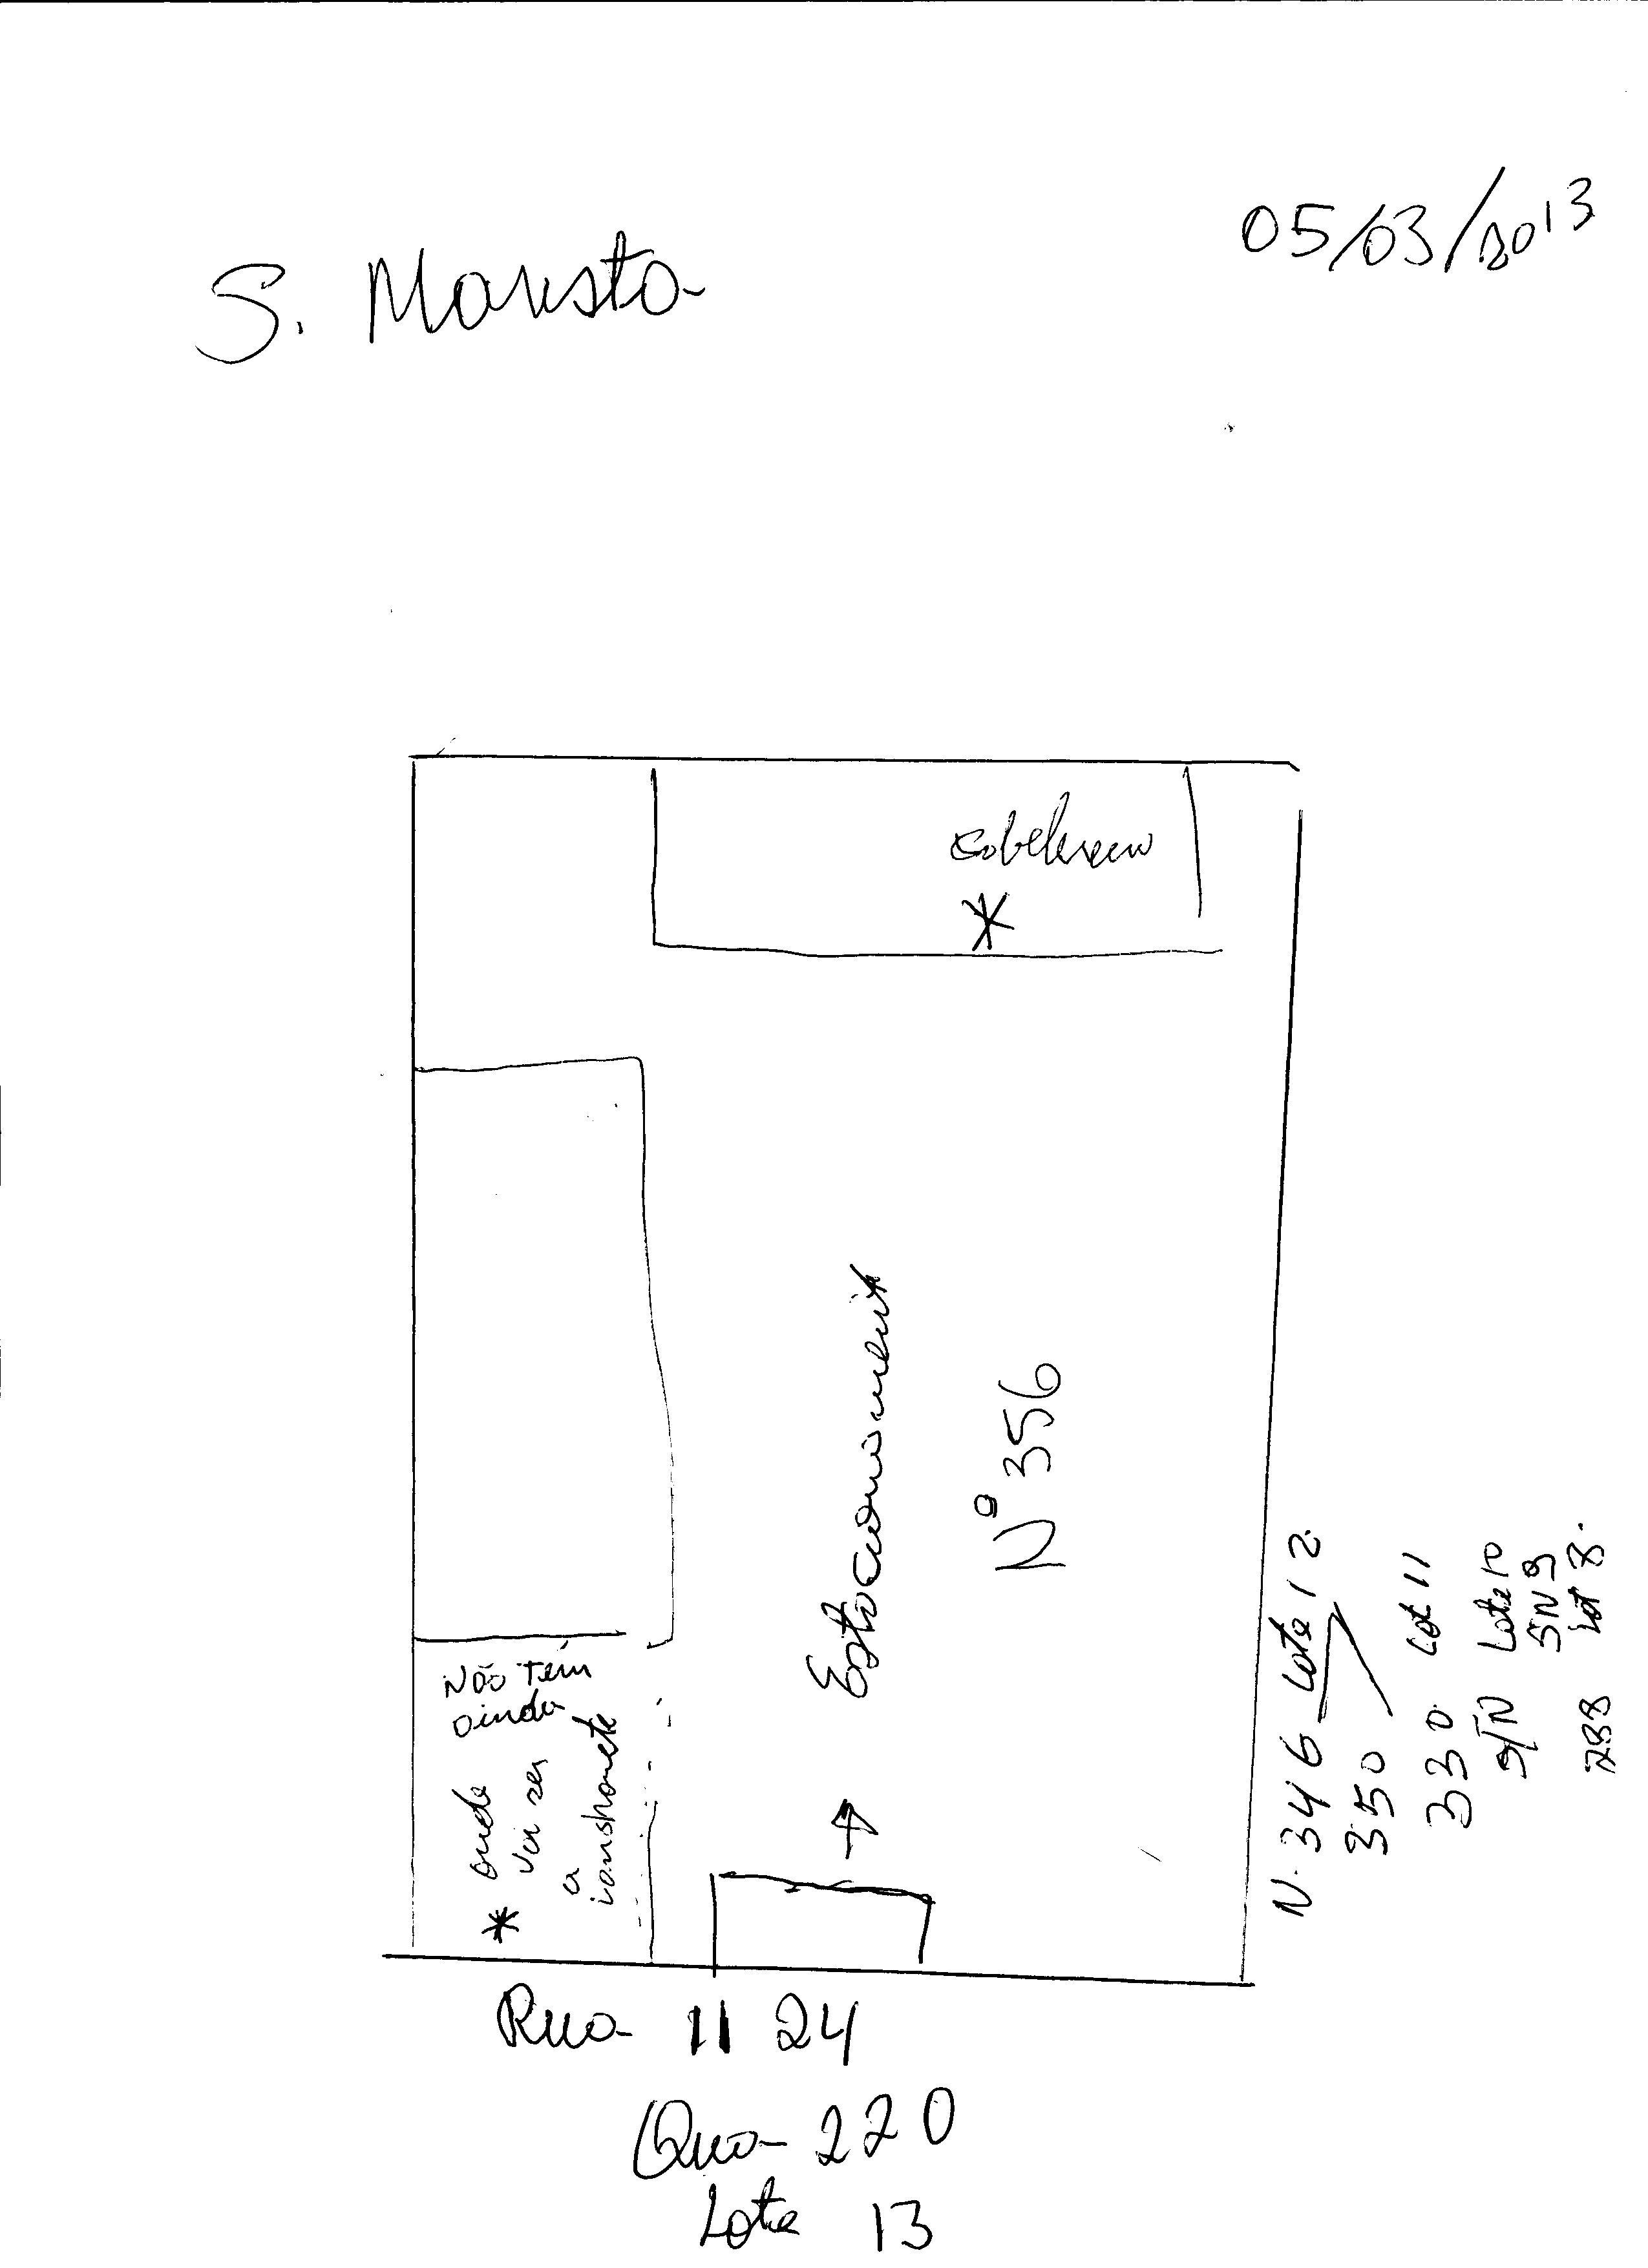 05/03/2013
S. Marista
cabelereiro
*
Estacionamento
Nº 356
Não tem
ainda
* onde
vai ser
a
lanshonete
N. 346 Lote 12.
350
330 Lot 11
S/N Lote 10
SN 9
288 Lot 8.
Rua 1124
Qua- 220
Lote 13